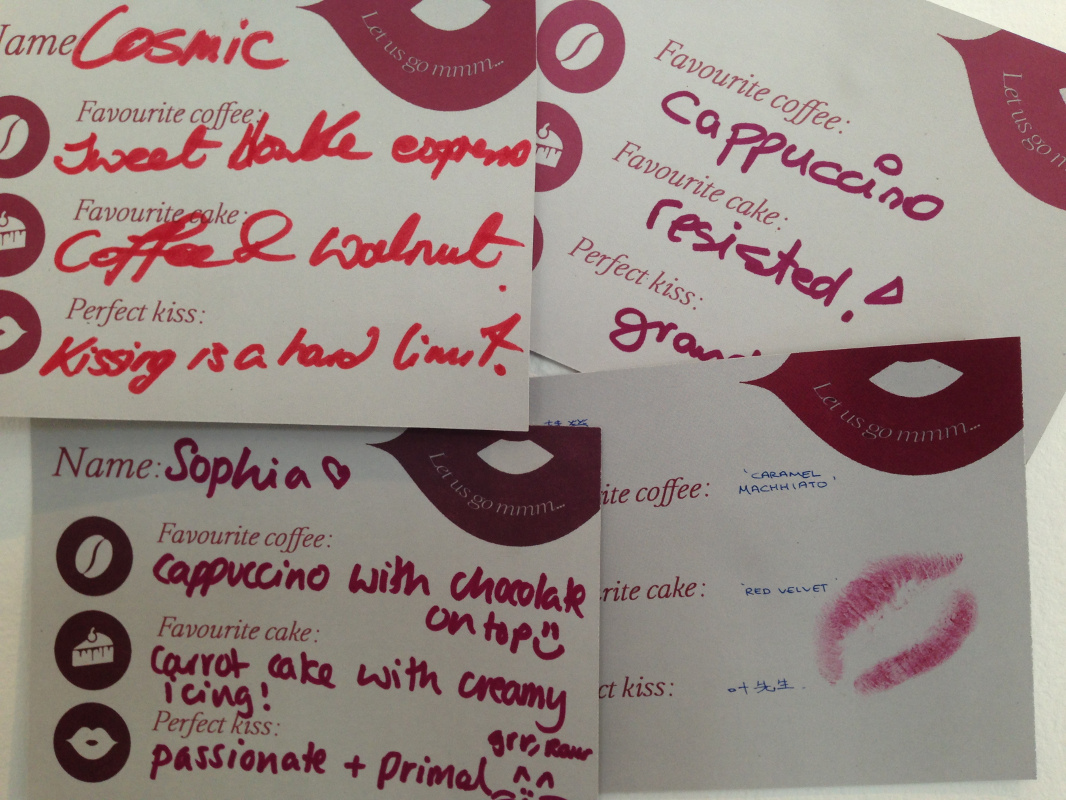 Name Cosmic
Let us go mmm...
Favourite coffee:
Sweet double espresso
Favourite cake:
Coffee & walnut.
Perfect kiss:
Kissing is a hard limit!
Favourite coffee:
cappuccino
Let us go m
Favourite cake:
resisted!
Perfect kiss:
Name: Sophia
Let us go mmm...
Favourite coffee:
cappuccino with chocolate
on top
Favourite cake:
Carrot cake with creamy
icing!
Perfect kiss:
grr, Rawr
passionate + primal
Let us go mmm...
ite coffee:
'CARAMEL
MACHHIATO'
rite cake:
'RED VELVET'
ct kiss:
叶先生.